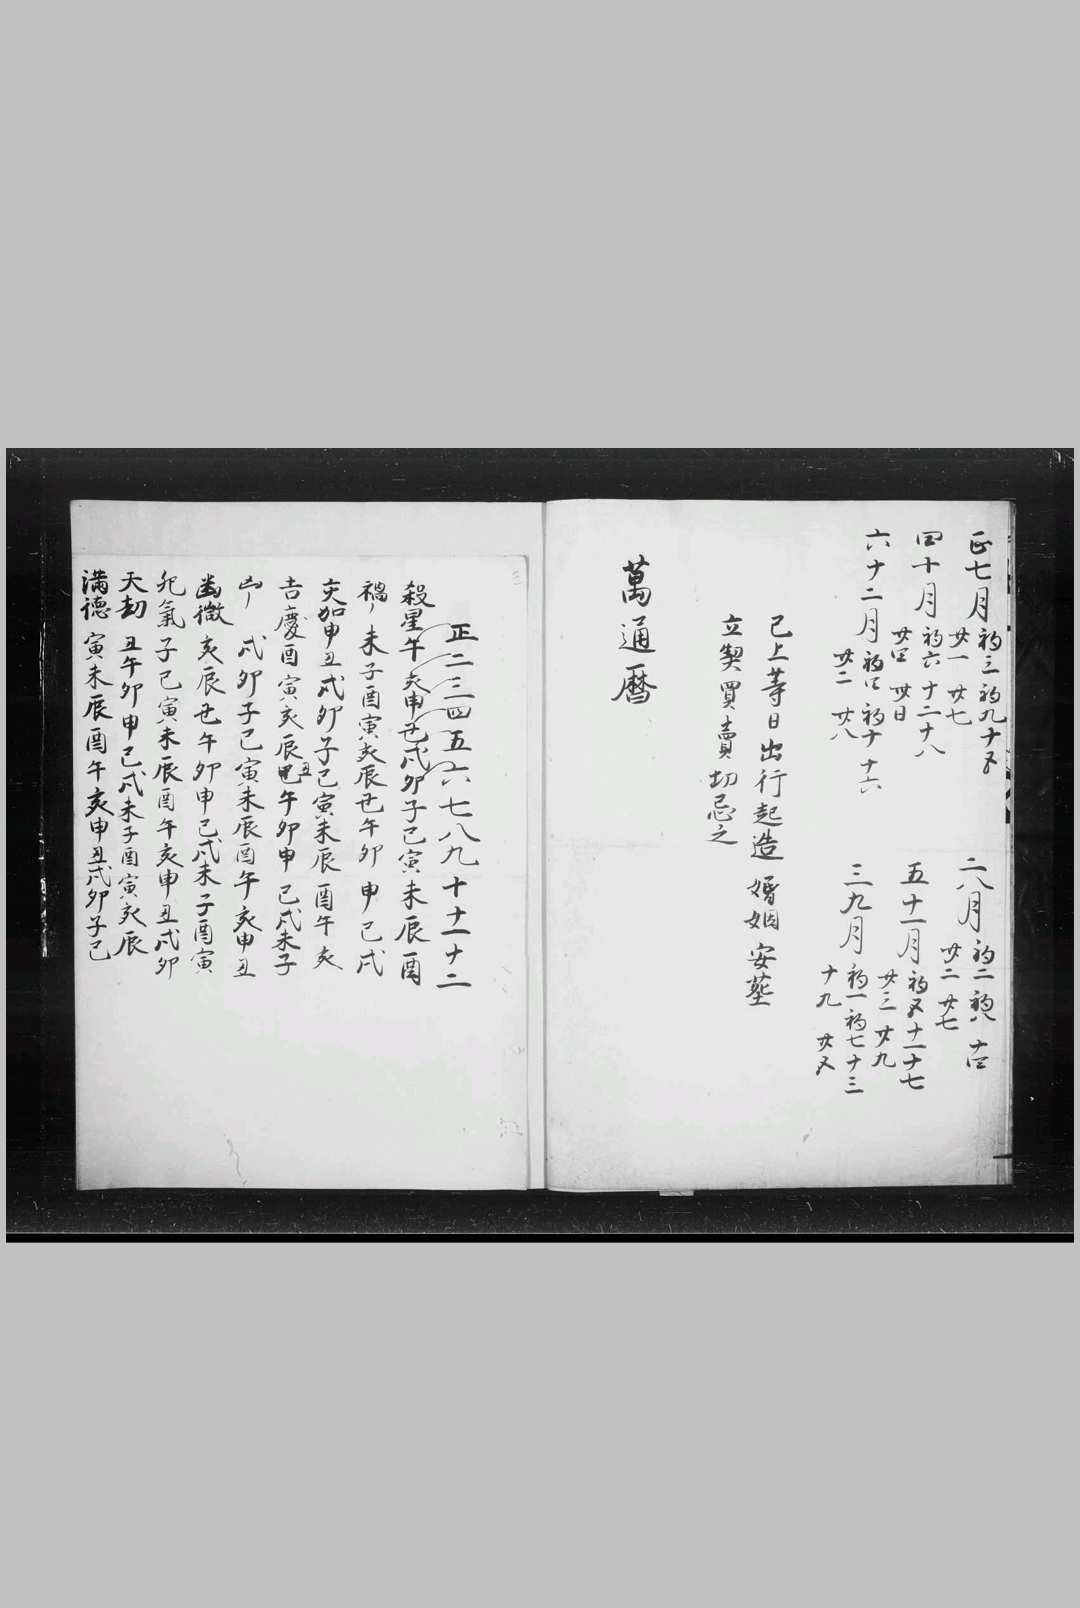 正七月 初三 初九 十五
廿一 廿七
二八月 初二 初八 十四
廿二 廿七
四十月 初六 十二 十八
廿四 卅日
五十一月 初五 十一 十七
廿三 廿九
六十二月 初四 初十 十六
廿二 廿八
三九月 初一 初七 十三
十九 廿五
已上等日出行起造婚姻安葬
立契買賣切忌之
萬通曆
正二三四五六七八九十十一十二
殺星午亥申丑戌卯子巳寅未辰酉
禍〃未子酉寅亥辰丑午卯申巳戌
交加申丑戌卯子巳寅未辰酉午亥
吉慶酉寅亥辰丑午卯申巳戌未子
凶〃戌卯子巳寅未辰酉午亥申丑
幽微亥辰丑午卯申巳戌未子酉寅
死氣子巳寅未辰酉午亥申丑戌卯
天劫丑午卯申巳戌未子酉寅亥辰
滿德寅未辰酉午亥申丑戌卯子巳